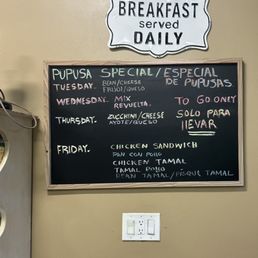 BREAKFAST
served
DAILY
PUPUSA SPECIAL/ESPECIAL
DE PUPUSAS
TUESDAY. BEAN/CHEESE
FRIJOL/QUESO
WEDNESDAY. MIX
REVUELTA.
TO GO ONLY
THURSDAY. ZUCCHINI/CHEESE
AYOTE/QUESO
SOLO PARA
LLEVAR
FRIDAY. CHICKEN SANDWICH
PAN CON POLLO
CHICKEN TAMAL
TAMAL POLLO
BEAN TAMAL/PISQUE TAMAL